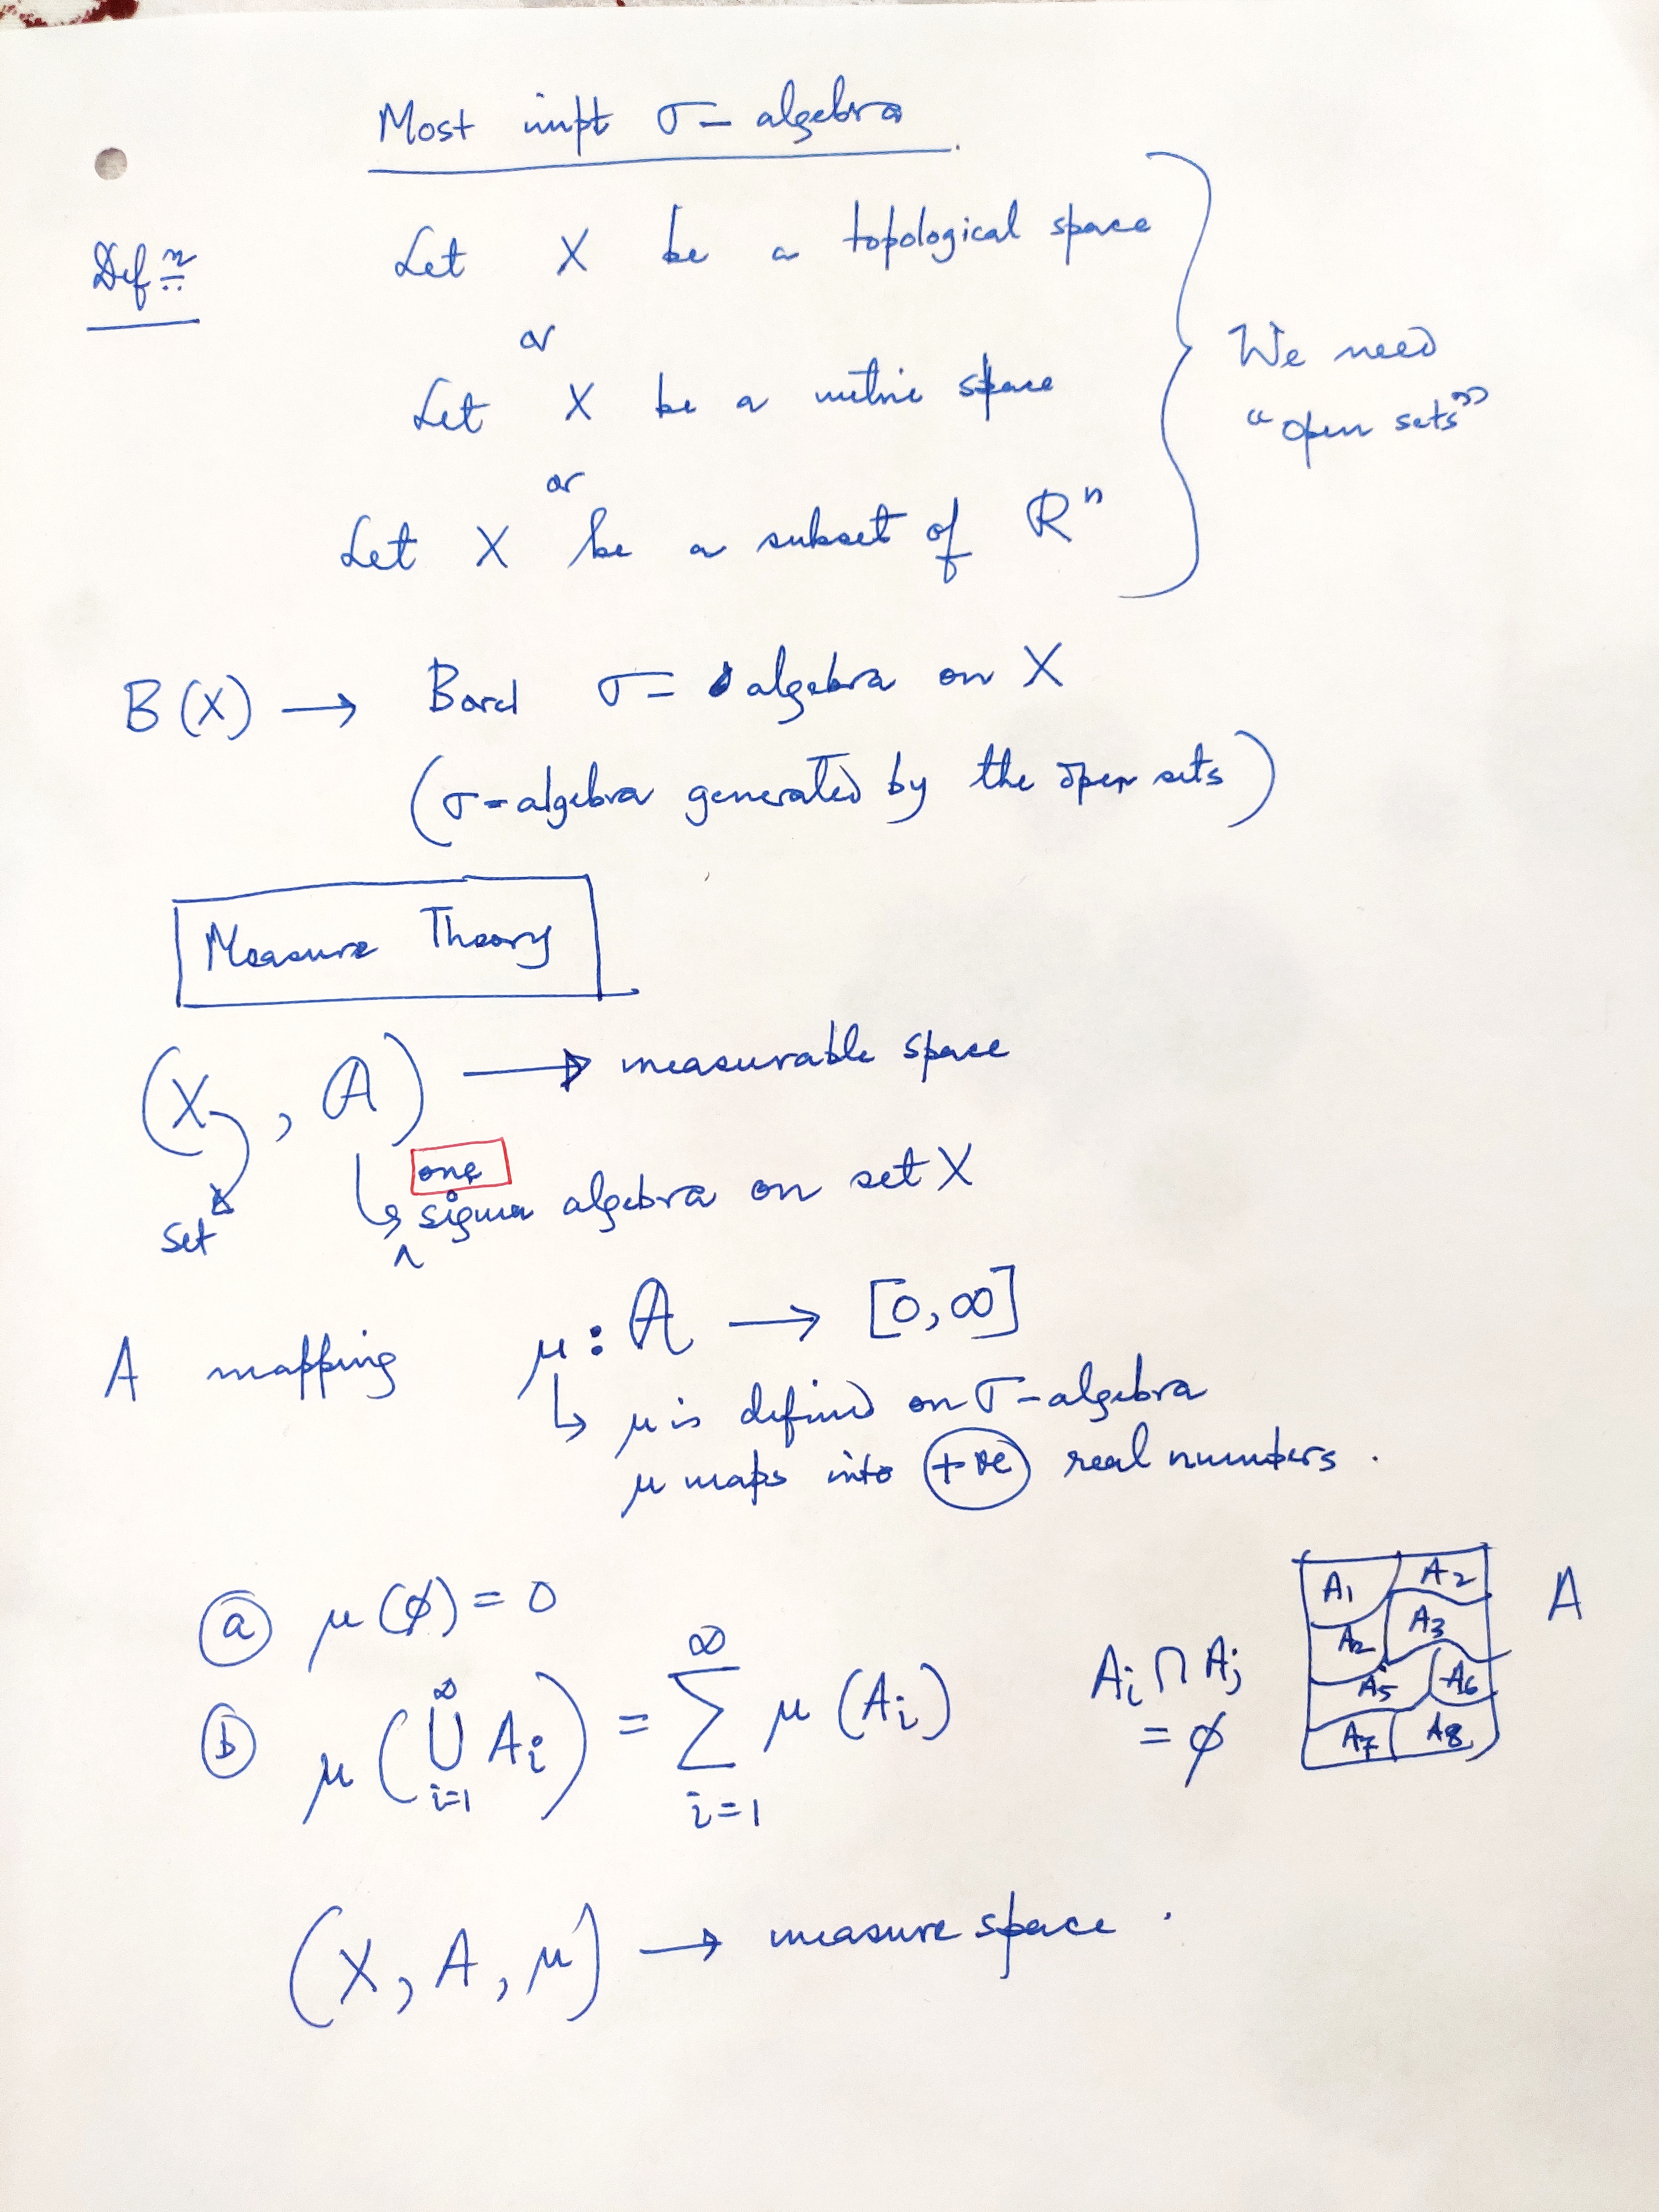 Most impt σ- algebra
Defn Let X be a topological space
or
Let X be a metric space
or
Let X be a subset of Rⁿ
We need
"open sets"
B(X) → Borel σ- algebra on X
(σ-algebra generated by the open sets)
Measure Theory
(X, A) → measurable space
set
one
sigma algebra on set X
A mapping μ: A → [0,∞]
μ is defined on σ-algebra
μ maps into +ve real numbers.
(a) μ(ϕ) = 0
(b) μ(⋃_{i=1}^{∞} A_i) = ∑_{i=1}^{∞} μ(A_i)
A_i ∩ A_j
= ϕ
A1 A2
A2 A3
A5 A6
A7 A8
A
(X, A, μ) → measure space.